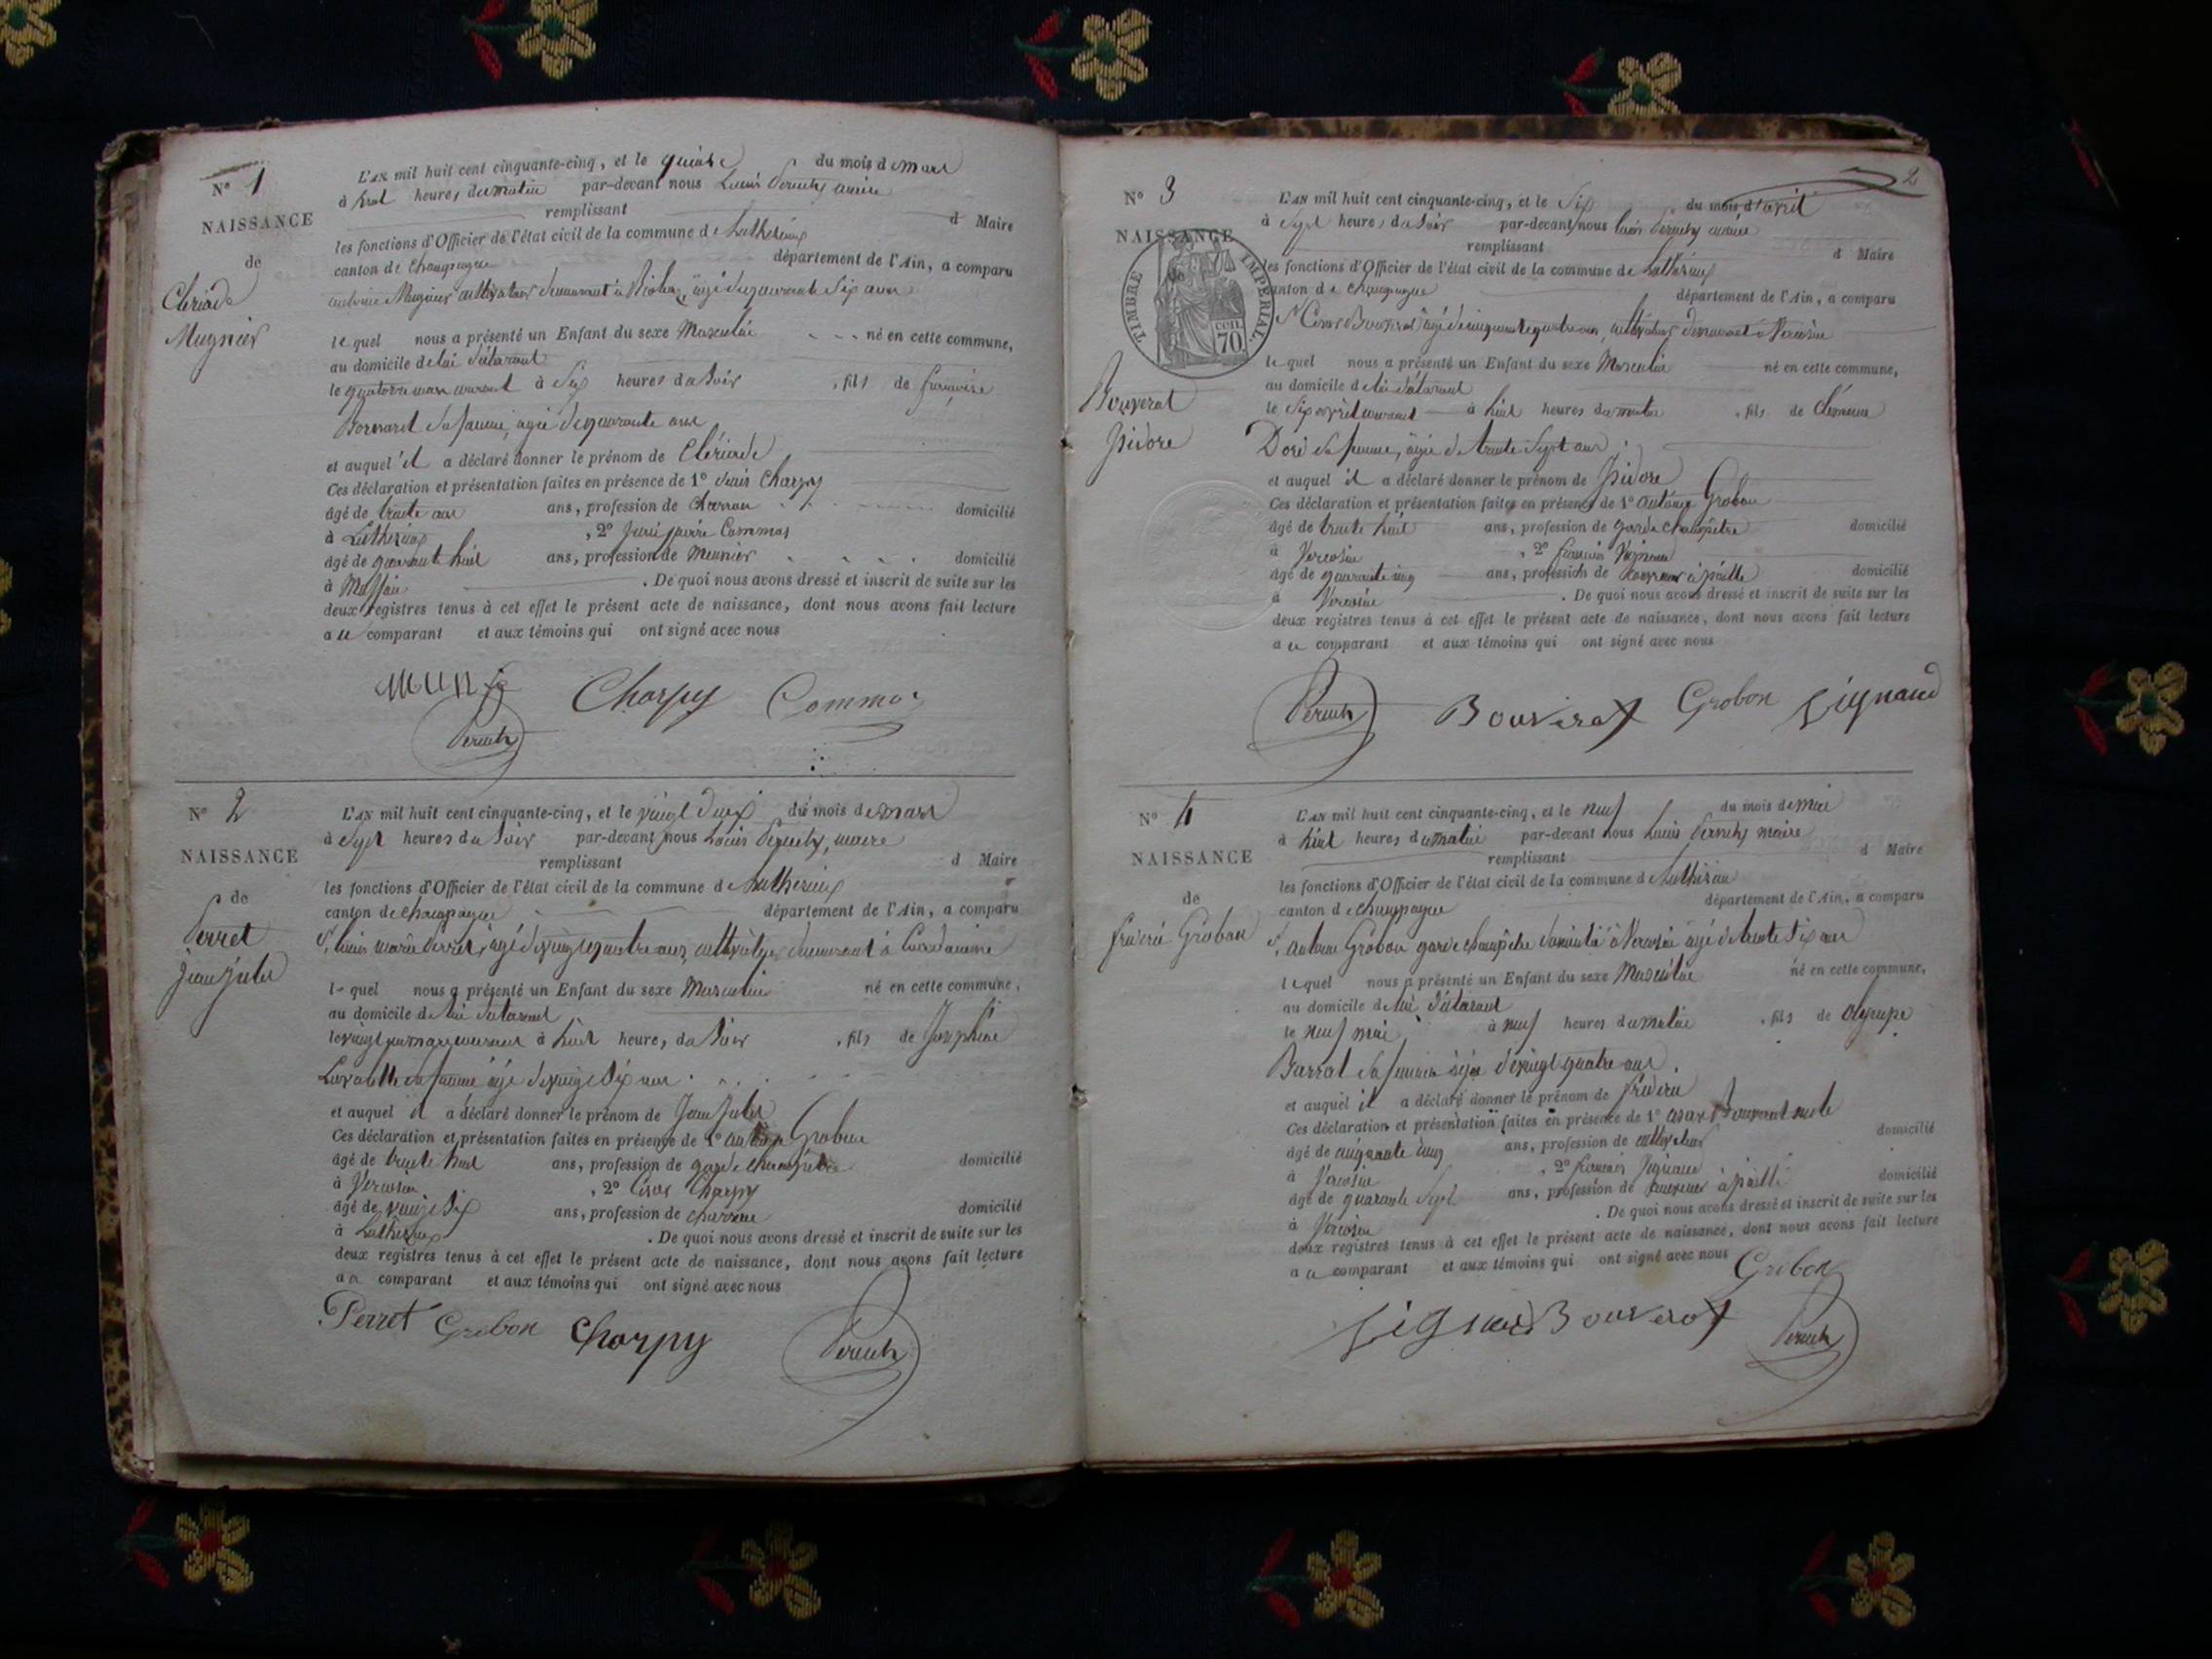 N° 1
NAISSANCE
de
Clériade
Mugnier
L'AN mil huit cent cinquante-cinq, et le quinze du mois de mars
à huit heures du matin par-devant nous Louis Perruchy maire
remplissant d Maire
les fonctions d'Officier de l'état civil de la commune de Luthézieu
canton de Champagne département de l'Ain, a comparu
antoine Mugnier cultivateur demeurant à agé de quarante Six ans
le quel nous a présenté un Enfant du sexe Masculin né en cette commune,
au domicile de lui déclarant
le quatorze mars courant à Six heures du Soir , fils de francoise
Bornarel sa femme, agée de quarante ans
et auquel il a déclaré donner le prénom de Clériade
Ces déclaration et présentation faites en présence de 1° Louis Charpy
âgé de trente ans ans, profession de charron domicilié
à Luthézieu , 2° pierre Commas
âgé de quarante huit ans, profession de Meunier domicilié
à Massieu . De quoi nous avons dressé et inscrit de suite sur les
deux registres tenus à cet effet le présent acte de naissance, dont nous avons fait lecture
a ce comparant et aux témoins qui ont signé avec nous
Charpy Commas
N° 2
NAISSANCE
de
Perret
Jean Jules
L'AN mil huit cent cinquante-cinq, et le vingt deux du mois de mars
à Sept heures du Soir par-devant nous Louis Perruchy, maire
remplissant d Maire
les fonctions d'Officier de l'état civil de la commune de Luthézieu
canton de Champagne département de l'Ain, a comparu
S. Louis marie Perret, agé de vingt quatre ans, cultivateur demeurant à
le quel nous a présenté un Enfant du sexe Masculin né en cette commune,
au domicile de lui déclarant
le vingt un mars courant à huit heures du Soir , fils de Joséphine
Lavalette sa femme agée de vingt Six ans
et auquel il a déclaré donner le prénom de Jean Jules
Ces déclaration et présentation faites en présence de 1° antoine Grobon
âgé de trente huit ans, profession de garde champêtre domicilié
à Vercosin , 2° Charpy
âgé de vingt Six ans, profession de charron domicilié
à Luthézieu . De quoi nous avons dressé et inscrit de suite sur les
deux registres tenus à cet effet le présent acte de naissance, dont nous avons fait lecture
a ce comparant et aux témoins qui ont signé avec nous
Perret Grobon Charpy
2
N° 3
NAISSANCE
de
TIMBRE IMPÉRIAL
CCIL
70
Bouverat
Isidore
L'AN mil huit cent cinquante-cinq, et le Six du mois d'avril
à Sept heures du Soir par-devant nous Louis Perruchy maire
remplissant d Maire
les fonctions d'Officier de l'état civil de la commune de Luthézieu
canton de Champagne département de l'Ain, a comparu
Bouverat agé de cinquante quatre ans, cultivateur demeurant à Vercosin
le quel nous a présenté un Enfant du sexe Masculin né en cette commune,
au domicile de lui déclarant
le Six avril courant à huit heures du matin , fils de Clémence
Doré sa femme, agée de trente Sept ans
et auquel il a déclaré donner le prénom de Isidore
Ces déclaration et présentation faites en présence de 1° antoine Grobon
âgé de trente huit ans, profession de garde champêtre domicilié
à Vercosin , 2° francois Vignaud
âgé de quarante cinq ans, profession de couvreur à paille domicilié
à Vercosin . De quoi nous avons dressé et inscrit de suite sur les
deux registres tenus à cet effet le présent acte de naissance, dont nous avons fait lecture
a ce comparant et aux témoins qui ont signé avec nous
Bouverat Grobon Vignaud
N° 4
NAISSANCE
de
Grobon
L'AN mil huit cent cinquante-cinq, et le neuf du mois de mai
à huit heures du matin par-devant nous Louis Perruchy maire
remplissant d Maire
les fonctions d'Officier de l'état civil de la commune de Luthézieu
canton de Champagne département de l'Ain, a comparu
S. antoine Grobon garde champêtre domicilié à Vercosin agé de trente Six ans
le quel nous a présenté un Enfant du sexe Masculin né en cette commune,
au domicile de lui déclarant
le neuf mai à neuf heures du matin , fils de olympe
Barral sa femme agée de vingt quatre ans
et auquel il a déclaré donner le prénom de
Ces déclaration et présentation faites en présence de 1°
âgé de cinquante cinq ans, profession de cultivateur domicilié
à Vercosin , 2° francois Vignaud
âgé de quarante Sept ans, profession de couvreur à paille domicilié
à Vercosin . De quoi nous avons dressé et inscrit de suite sur les
deux registres tenus à cet effet le présent acte de naissance, dont nous avons fait lecture
a ce comparant et aux témoins qui ont signé avec nous
Grobon
Vignaud Bouverat